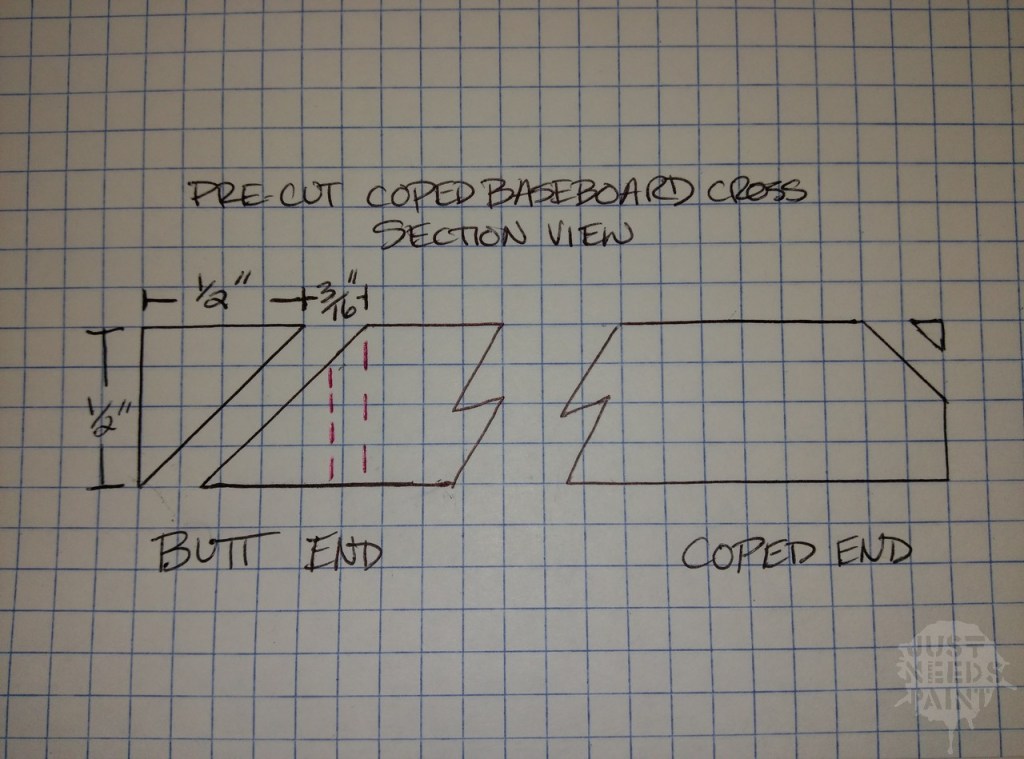 PRE-CUT COPED BASEBOARD CROSS
SECTION VIEW
1/2" 3/16"
1/2"
BUTT END COPED END
JUST
NEEDS
PAINT